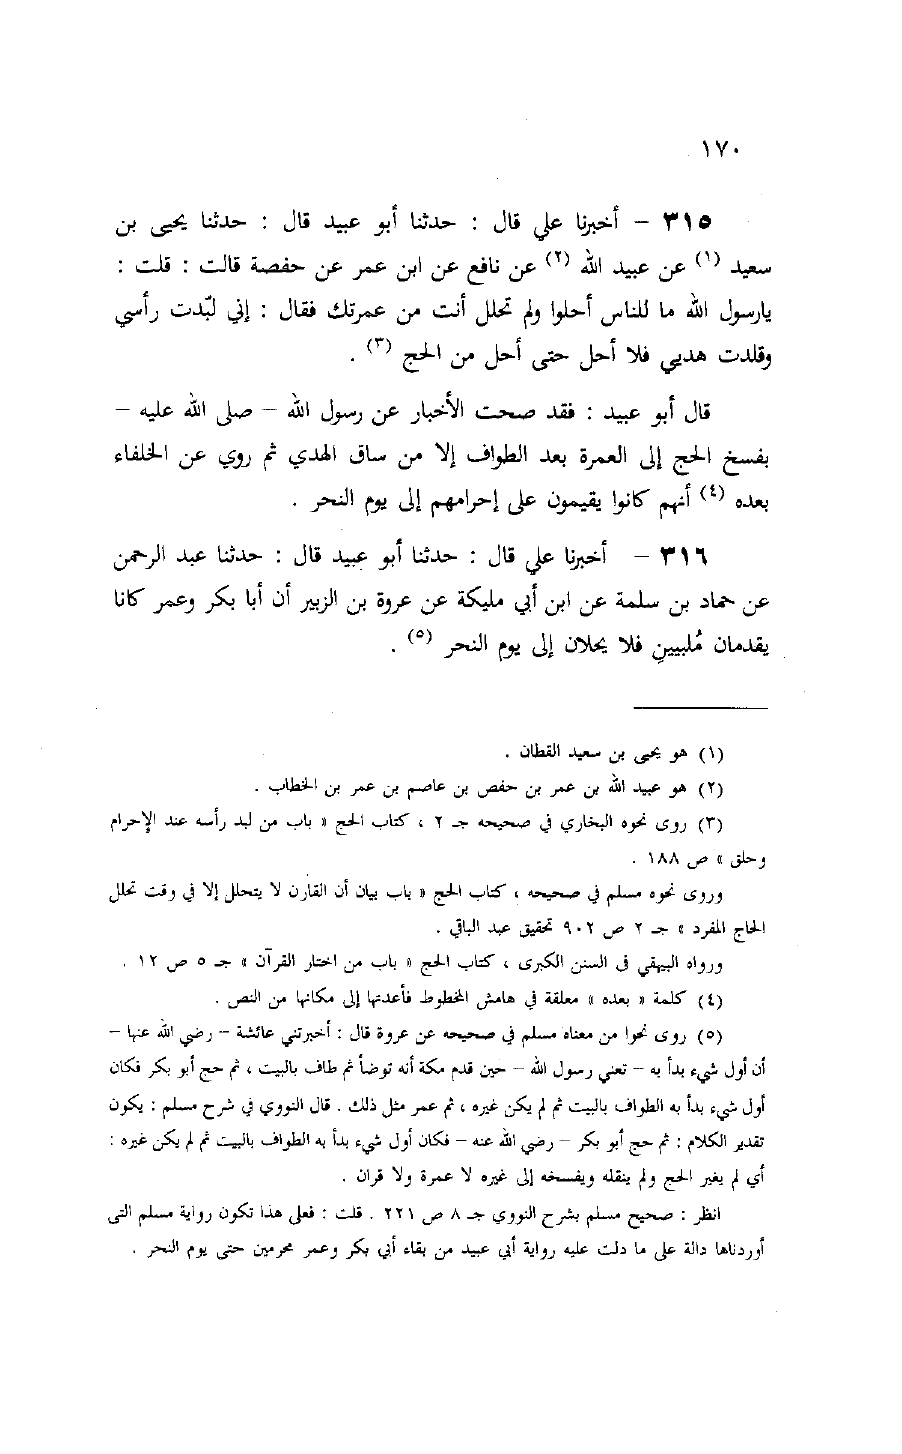 ١٧٠
٣١٥ – أخبرنا علي قال : حدثنا أبو عبيد قال : حدثنا يحيى بن
سعيد (١) عن عبيد الله (٢) عن نافع عن ابن عمر عن حفصة قالت : قلت :
يارسول الله ما للناس أحلوا ولم تحلل أنت من عمرتك فقال : إني لبّدت رأسي
وقلدت هديي فلا أحل حتى أحل من الحج (٣) .
قال أبو عبيد : فقد صحت الأخبار عن رسول الله – صلى الله عليه –
بفسخ الحج إلى العمرة بعد الطواف إلا من ساق الهدي ثم روي عن الخلفاء
بعده (٤) أنهم كانوا يقيمون على إحرامهم إلى يوم النحر .
٣١٦ – أخبرنا علي قال : حدثنا أبو عبيد قال : حدثنا عبد الرحمن
عن حماد بن سلمة عن ابن أبي مليكة عن عروة بن الزبير أن أبا بكر وعمر كانا
يقدمان مُلبيينِ فلا يحلان إلى يوم النحر (٥) .
(١) هو يحيى بن سعيد القطان .
(٢) هو عبيد الله بن عمر بن حفص بن عاصم بن عمر بن الخطاب .
(٣) روى نحوه البخاري في صحيحه جـ ٢ ، كتاب الحج « باب من لبد رأسه عند الإحرام
وحلق » ص ١٨٨ .
وروى نحوه مسلم في صحيحه ، كتاب الحج « باب بيان أن القارن لا يتحلل إلا في وقت تحلل
الحاج المفرد » جـ ٢ ص ٩٠٢ تحقيق عبد الباقي .
ورواه البيهقي فى السنن الكبرى ، كتاب الحج « باب من اختار القرآن » جـ ٥ ص ١٢ .
(٤) كلمة « بعده » معلقة في هامش المخطوط فأعدتها إلى مكانها من النص .
(٥) روى نحوا من معناه مسلم في صحيحه عن عروة قال : أخبرتني عائشة – رضي الله عنها –
أن أول شيء بدأ به – تعني رسول الله – حين قدم مكة أنه توضأ ثم طاف بالبيت ، ثم حج أبو بكر فكان
أول شيء بدأ به الطواف بالبيت ثم لم يكن غيره ، ثم عمر مثل ذلك . قال النووي في شرح مسلم : يكون
تقدير الكلام : ثم حج أبو بكر – رضي الله عنه – فكان أول شيء بدأ به الطواف بالبيت ثم لم يكن غيره :
أي لم يغير الحج ولم ينقله ويفسخه إلى غيره لا عمرة ولا قران .
انظر : صحيح مسلم بشرح النووي جـ ٨ ص ٢٢١ . قلت : فعلى هذا تكون رواية مسلم التى
أوردناها دالة على ما دلت عليه رواية أبي عبيد من بقاء أبي بكر وعمر محرمين حتى يوم النحر .